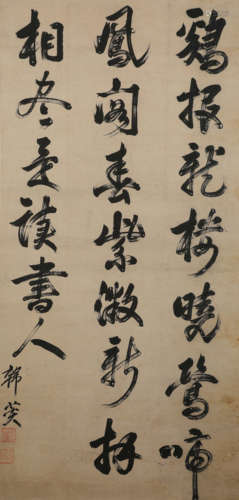 鷄報龍樓曉鶯啼
鳳閣春紫薇新拜
相盡是讀書人
韓菼